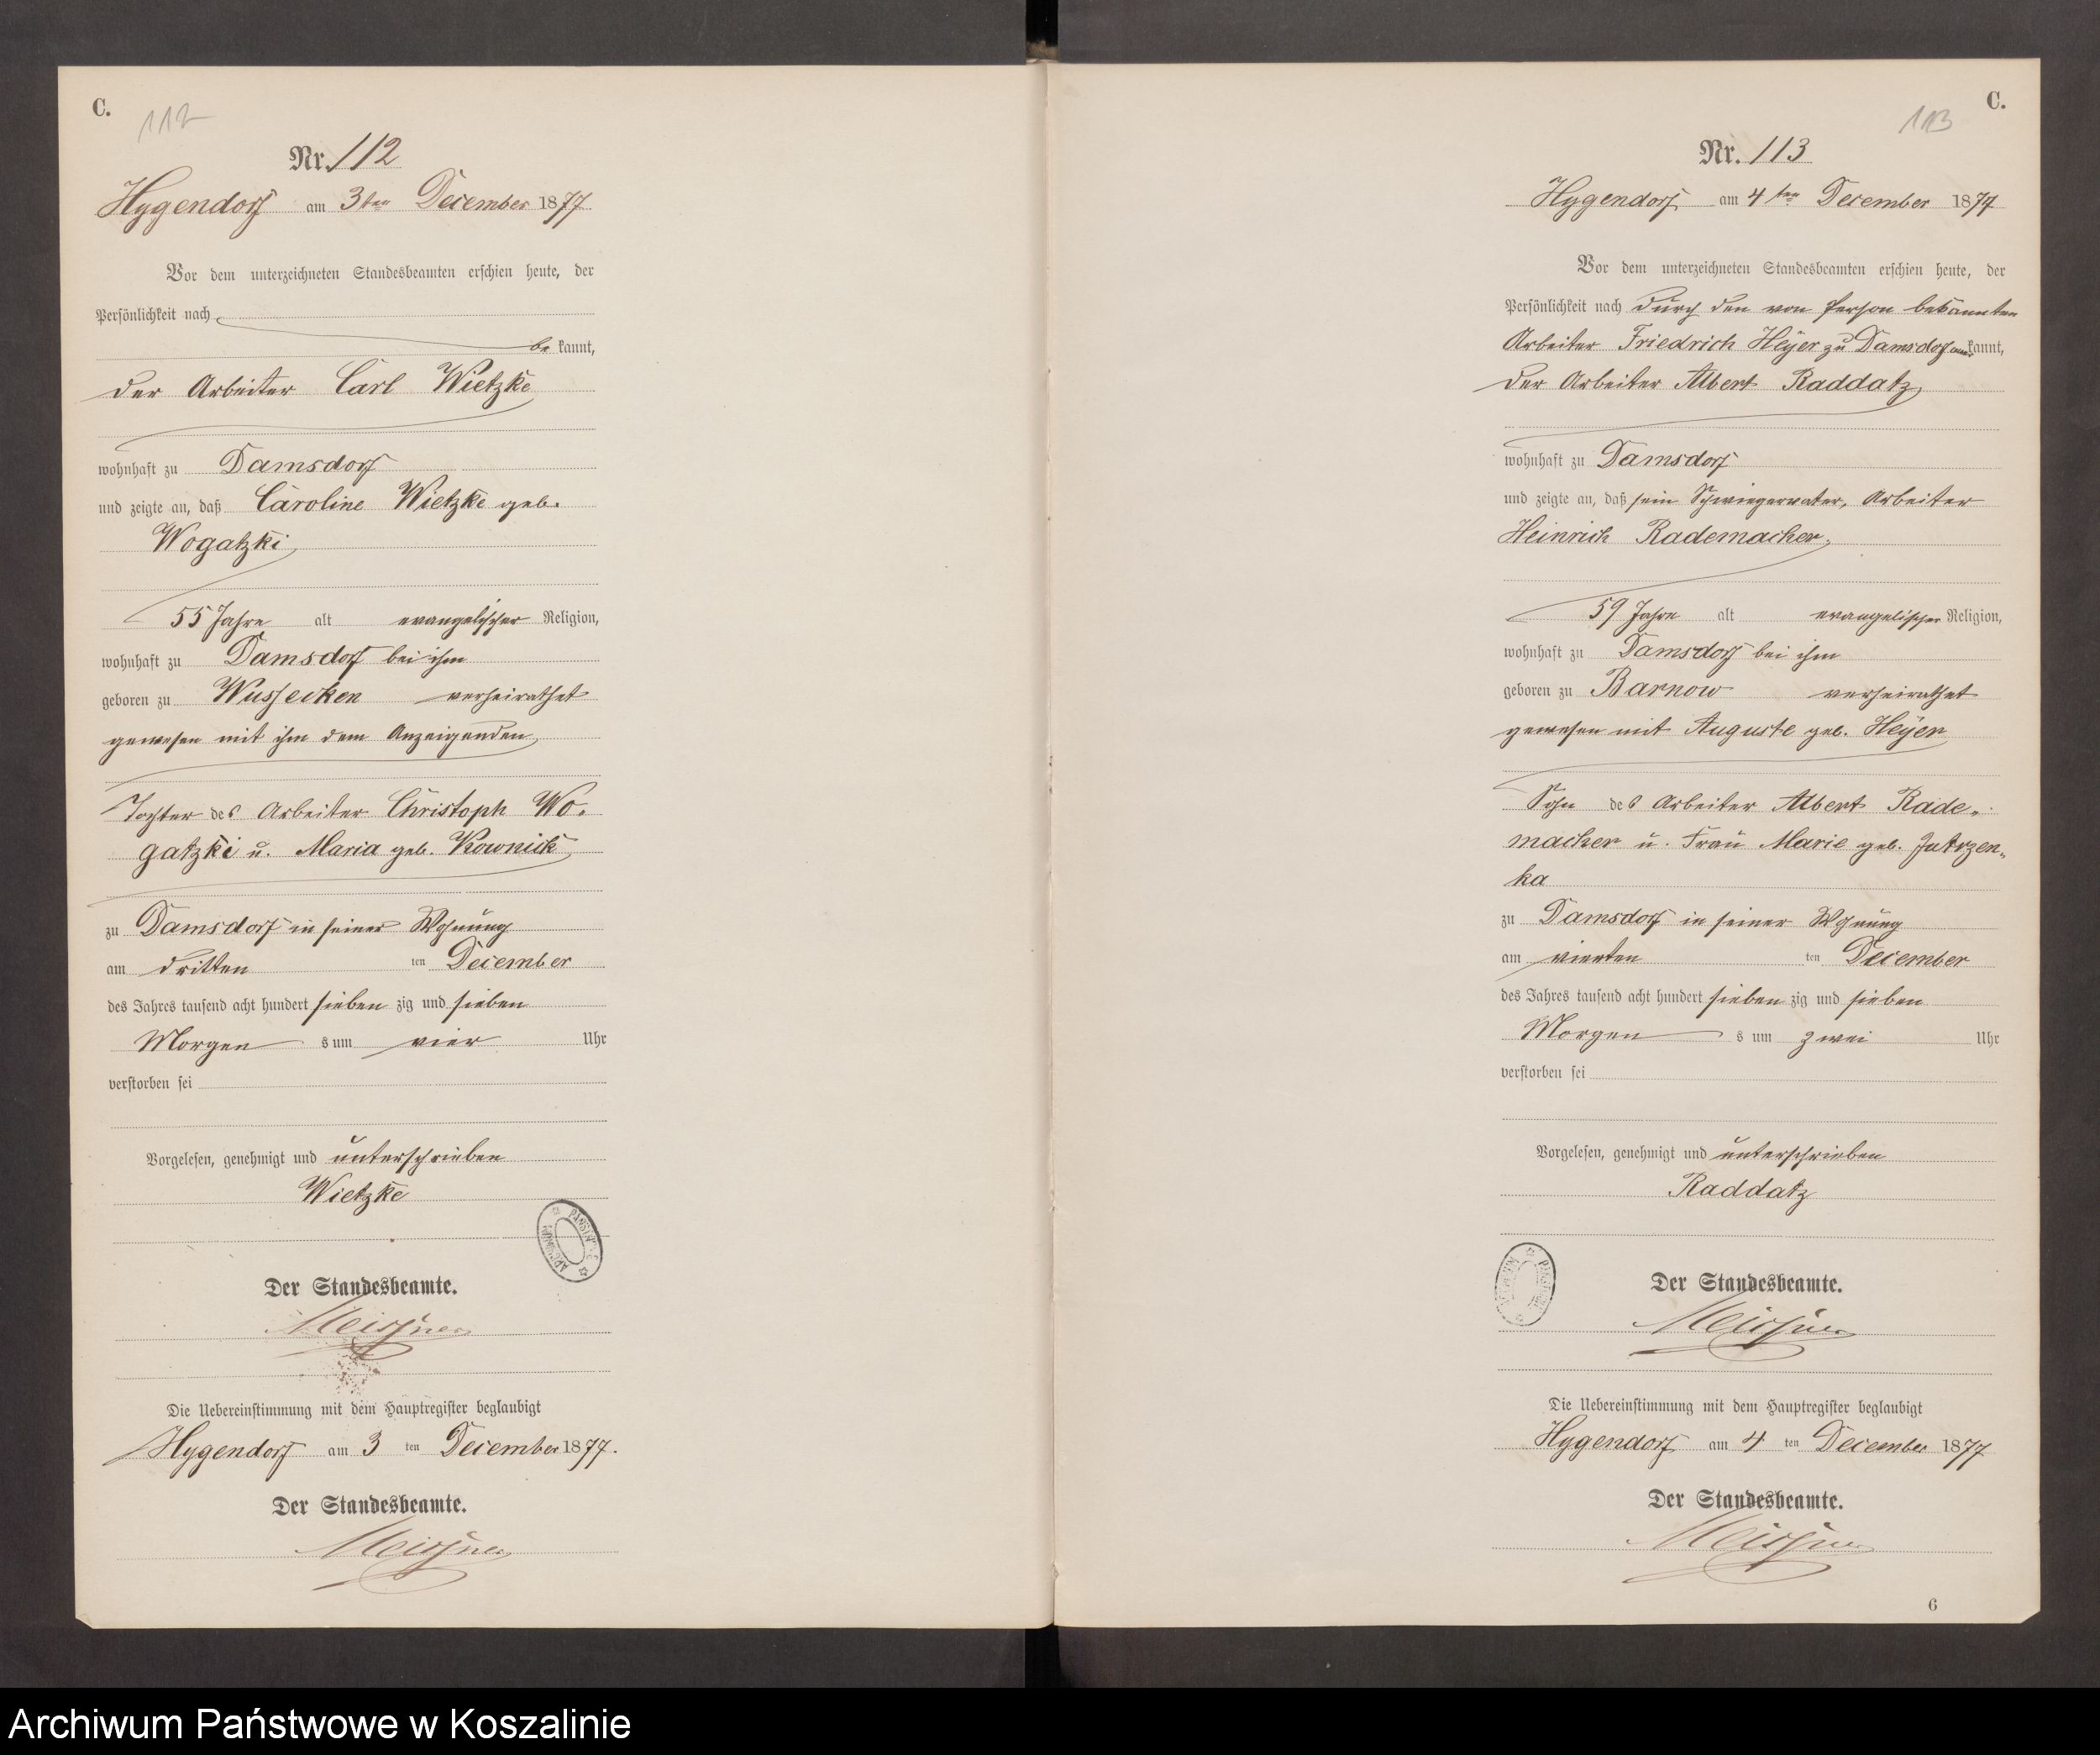 C.
112
Nr. 112
Hygendorf am 3ten December 1877
Vor dem unterzeichneten Standesbeamten erschien heute, der
Persönlichkeit nach
be kannt,
der Arbeiter Carl Wietzke
wohnhaft zu Damsdorf
und zeigte an, daß Caroline Wietzke geb.
Wogatzki
55 Jahre alt evangelischer Religion,
wohnhaft zu Damsdorf bei ihm
geboren zu Wussecken verheirathet
gewesen mit ihm dem Anzeigenden
Tochter des Arbeiter Christoph Wo-
gatzki u. Maria geb. Kownick
zu Damsdorf in seiner Wohnung
am dritten ten December
des Jahres tausend acht hundert sieben zig und sieben
Morgen s um vier Uhr
verstorben sei
Vorgelesen, genehmigt und unterschrieben
Wietzke
Der Standesbeamte.
Meissner
Die Uebereinstimmung mit dem Hauptregister beglaubigt
Hygendorf am 3 ten December 1877.
Der Standesbeamte.
Meissner
C.
113
Nr. 113
Hygendorf am 4ten December 1877
Vor dem unterzeichneten Standesbeamten erschien heute, der
Persönlichkeit nach durch den von Person bekannten
Arbeiter Friedrich Heyer zu Damsdorf aner kannt,
der Arbeiter Albert Raddatz
wohnhaft zu Damsdorf
und zeigte an, daß sein Schwiegervater, Arbeiter
Heinrich Rademacher,
59 Jahre alt evangelischer Religion,
wohnhaft zu Damsdorf bei ihm
geboren zu Barnow verheirathet
gewesen mit Auguste geb. Heyer
Sohn des Arbeiter Albert Rade-
macher u. Frau Marie geb. Jutrzen-
ka
zu Damsdorf in seiner Wohnung
am vierten ten December
des Jahres tausend acht hundert sieben zig und sieben
Morgen s um zwei Uhr
verstorben sei
Vorgelesen, genehmigt und unterschrieben
Raddatz
Der Standesbeamte.
Meissner
Die Uebereinstimmung mit dem Hauptregister beglaubigt
Hygendorf am 4 ten December 1877
Der Standesbeamte.
Meissner
6
Archiwum Państwowe w Koszalinie